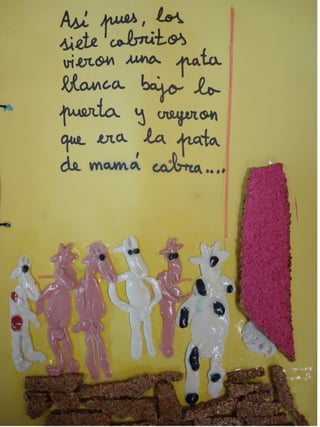 Así pues, los
siete cabritos
vieron una pata
blanca bajo la
puerta y creyeron
que era la pata
de mamá cabra....